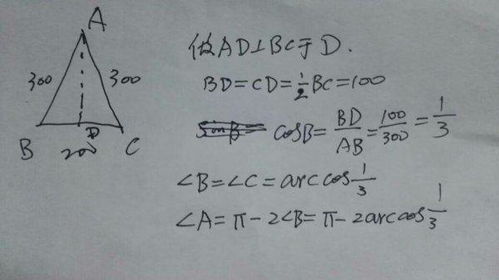 A
300
300
B
D
C
200
做AD⊥BC于D.
BD=CD=½BC=100
cosB=BD/AB=100/300=1/3
∠B=∠C=arccos1/3
∠A=π-2∠B=π-2arccos1/3